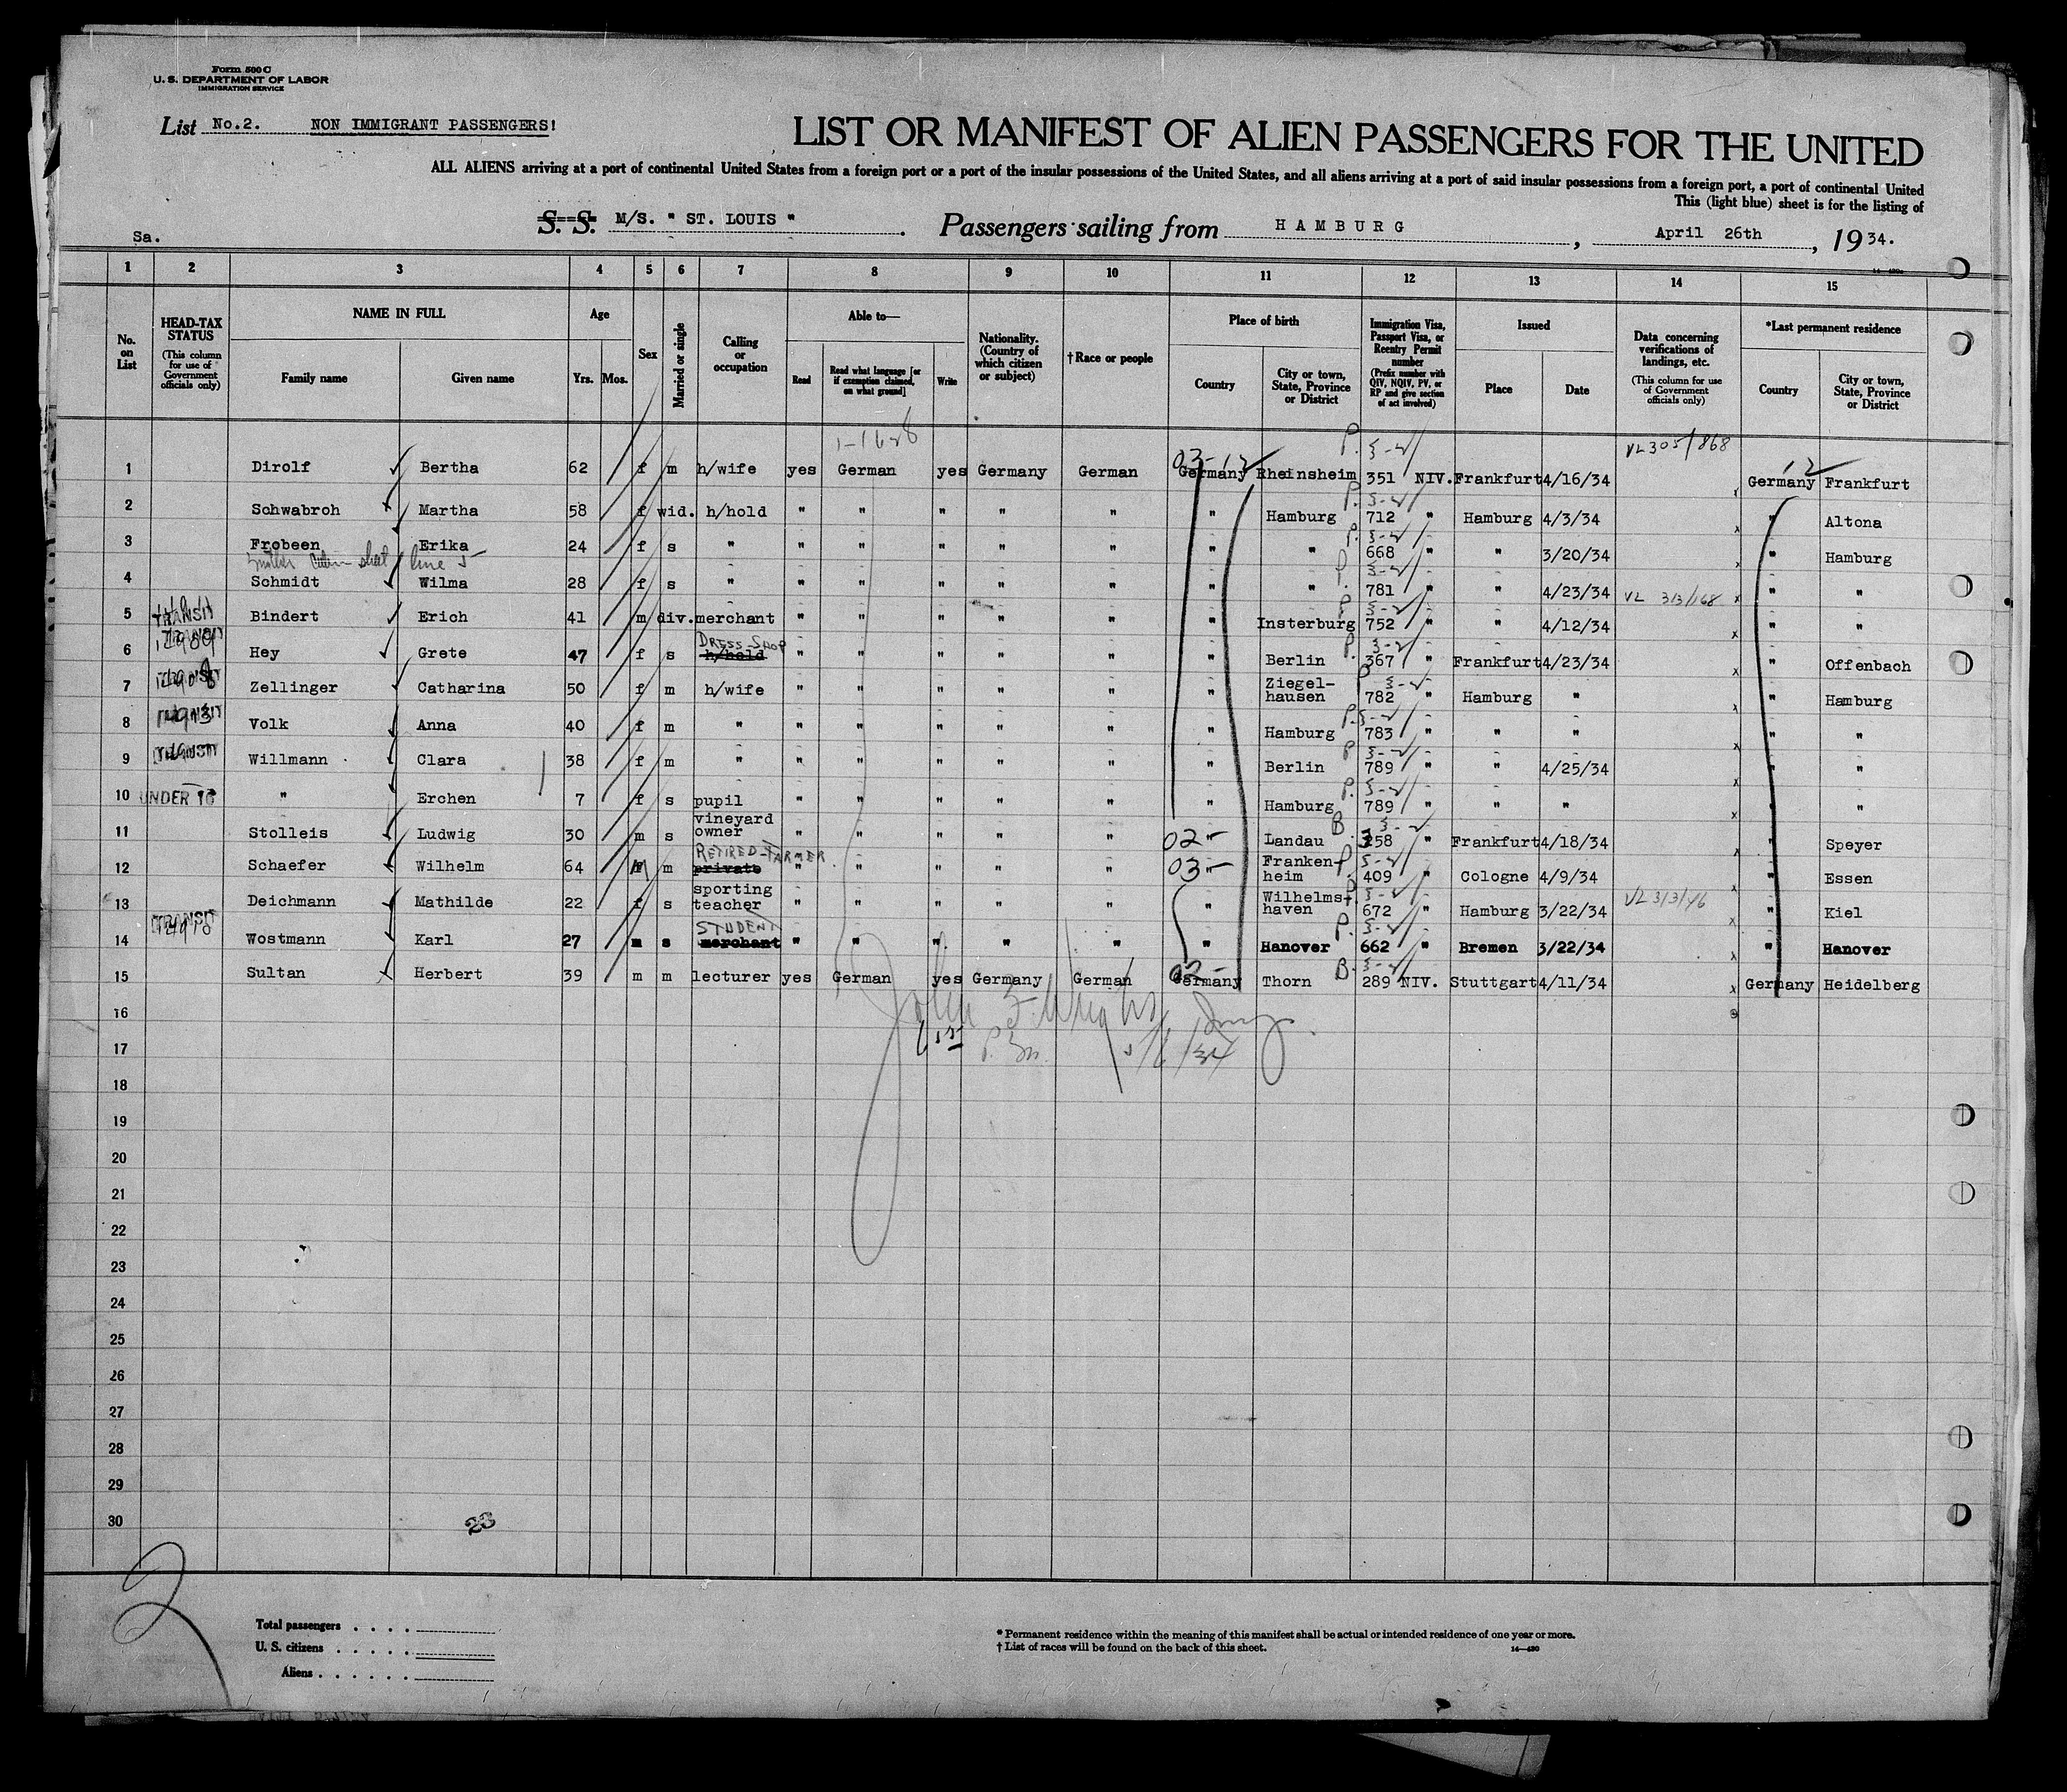 Form 500 C
U. S. DEPARTMENT OF LABOR
IMMIGRATION SERVICE
List No.2. NON IMMIGRANT PASSENGERS!
LIST OR MANIFEST OF ALIEN PASSENGERS FOR THE UNITED
ALL ALIENS arriving at a port of continental United States from a foreign port or a port of the insular possessions of the United States, and all aliens arriving at a port of said insular possessions from a foreign port, a port of continental United
This (light blue) sheet is for the listing of
S. S. M/S. " ST. LOUIS " . Passengers sailing from HAMBURG , April 26th , 1934.
Sa.
1 2 3 4 5 6 7 8 9 10 11 12 13 14 15
No. on List
HEAD-TAX STATUS (This column for use of Government officials only)
NAME IN FULL Family name Given name
Age Yrs. Mos.
Sex
Married or single
Calling or occupation
Able to— Read Read what language [or if exemption claimed, on what ground] Write
Nationality. (Country of which citizen or subject)
†Race or people
Place of birth Country City or town, State, Province or District
Immigration Visa, Passport Visa, or Reentry Permit number (Prefix number with QIV, NQIV, PV, or RP and give section of act involved)
Issued Place Date
Data concerning verifications of landings, etc. (This column for use of Government officials only)
*Last permanent residence Country City or town, State, Province or District
VL 305/868
1 Dirolf Bertha 62 f m h/wife yes German yes Germany German Germany Rheinsheim 351 NIV. Frankfurt 4/16/34 Germany Frankfurt
2 Schwabroh Martha 58 f wid. h/hold " " " " " " Hamburg 712 " Hamburg 4/3/34 " Altona
3 Frobeen Erika 24 f s " " " " " " " " 668 " " 3/20/34 " Hamburg
4 Schmidt Wilma 28 f s " " " " " " " " 781 " " 4/23/34 VL 313/168 " "
5 TRANSIT Bindert Erich 41 m div. merchant " " " " " " Insterburg 752 " " 4/12/34 " "
6 Hey Grete 47 f s DRESS-SHOP h/hold " " " " " " Berlin 367 " Frankfurt 4/23/34 " Offenbach
7 Zellinger Catharina 50 f m h/wife " " " " " " Ziegel-hausen 782 " Hamburg " " Hamburg
8 Volk Anna 40 f m " " " " " " " Hamburg 783 " " " " "
9 Willmann Clara 38 f m " " " " " " " Berlin 789 " " 4/25/34 " "
10 UNDER 16 " Erchen 7 f s pupil " " " " " " Hamburg 789 " " " " "
11 Stolleis Ludwig 30 m s vineyard owner " " " " " 02- " Landau 258 " Frankfurt 4/18/34 " Speyer
12 Schaefer Wilhelm 64 M m RETIRED-FARMER private " " " " " 03- " Franken-heim 409 " Cologne 4/9/34 " Essen
13 Deichmann Mathilde 22 f s sporting teacher " " " " " " Wilhelms-haven 672 " Hamburg 3/22/34 " Kiel
14 TRANSIT Wostmann Karl 27 m s STUDENT merchant " " " " " " Hanover 662 " Bremen 3/22/34 " Hanover
15 Sultan Herbert 39 m m lecturer yes German yes Germany German Germany Thorn 289 NIV. Stuttgart 4/11/34 Germany Heidelberg
16
17
18
19
20
21
22
23
24
25
26
27
28
29
30
23
2
Total passengers . . . .
U. S. citizens . . . . .
Aliens . . . . . .
* Permanent residence within the meaning of this manifest shall be actual or intended residence of one year or more.
† List of races will be found on the back of this sheet.
14—430